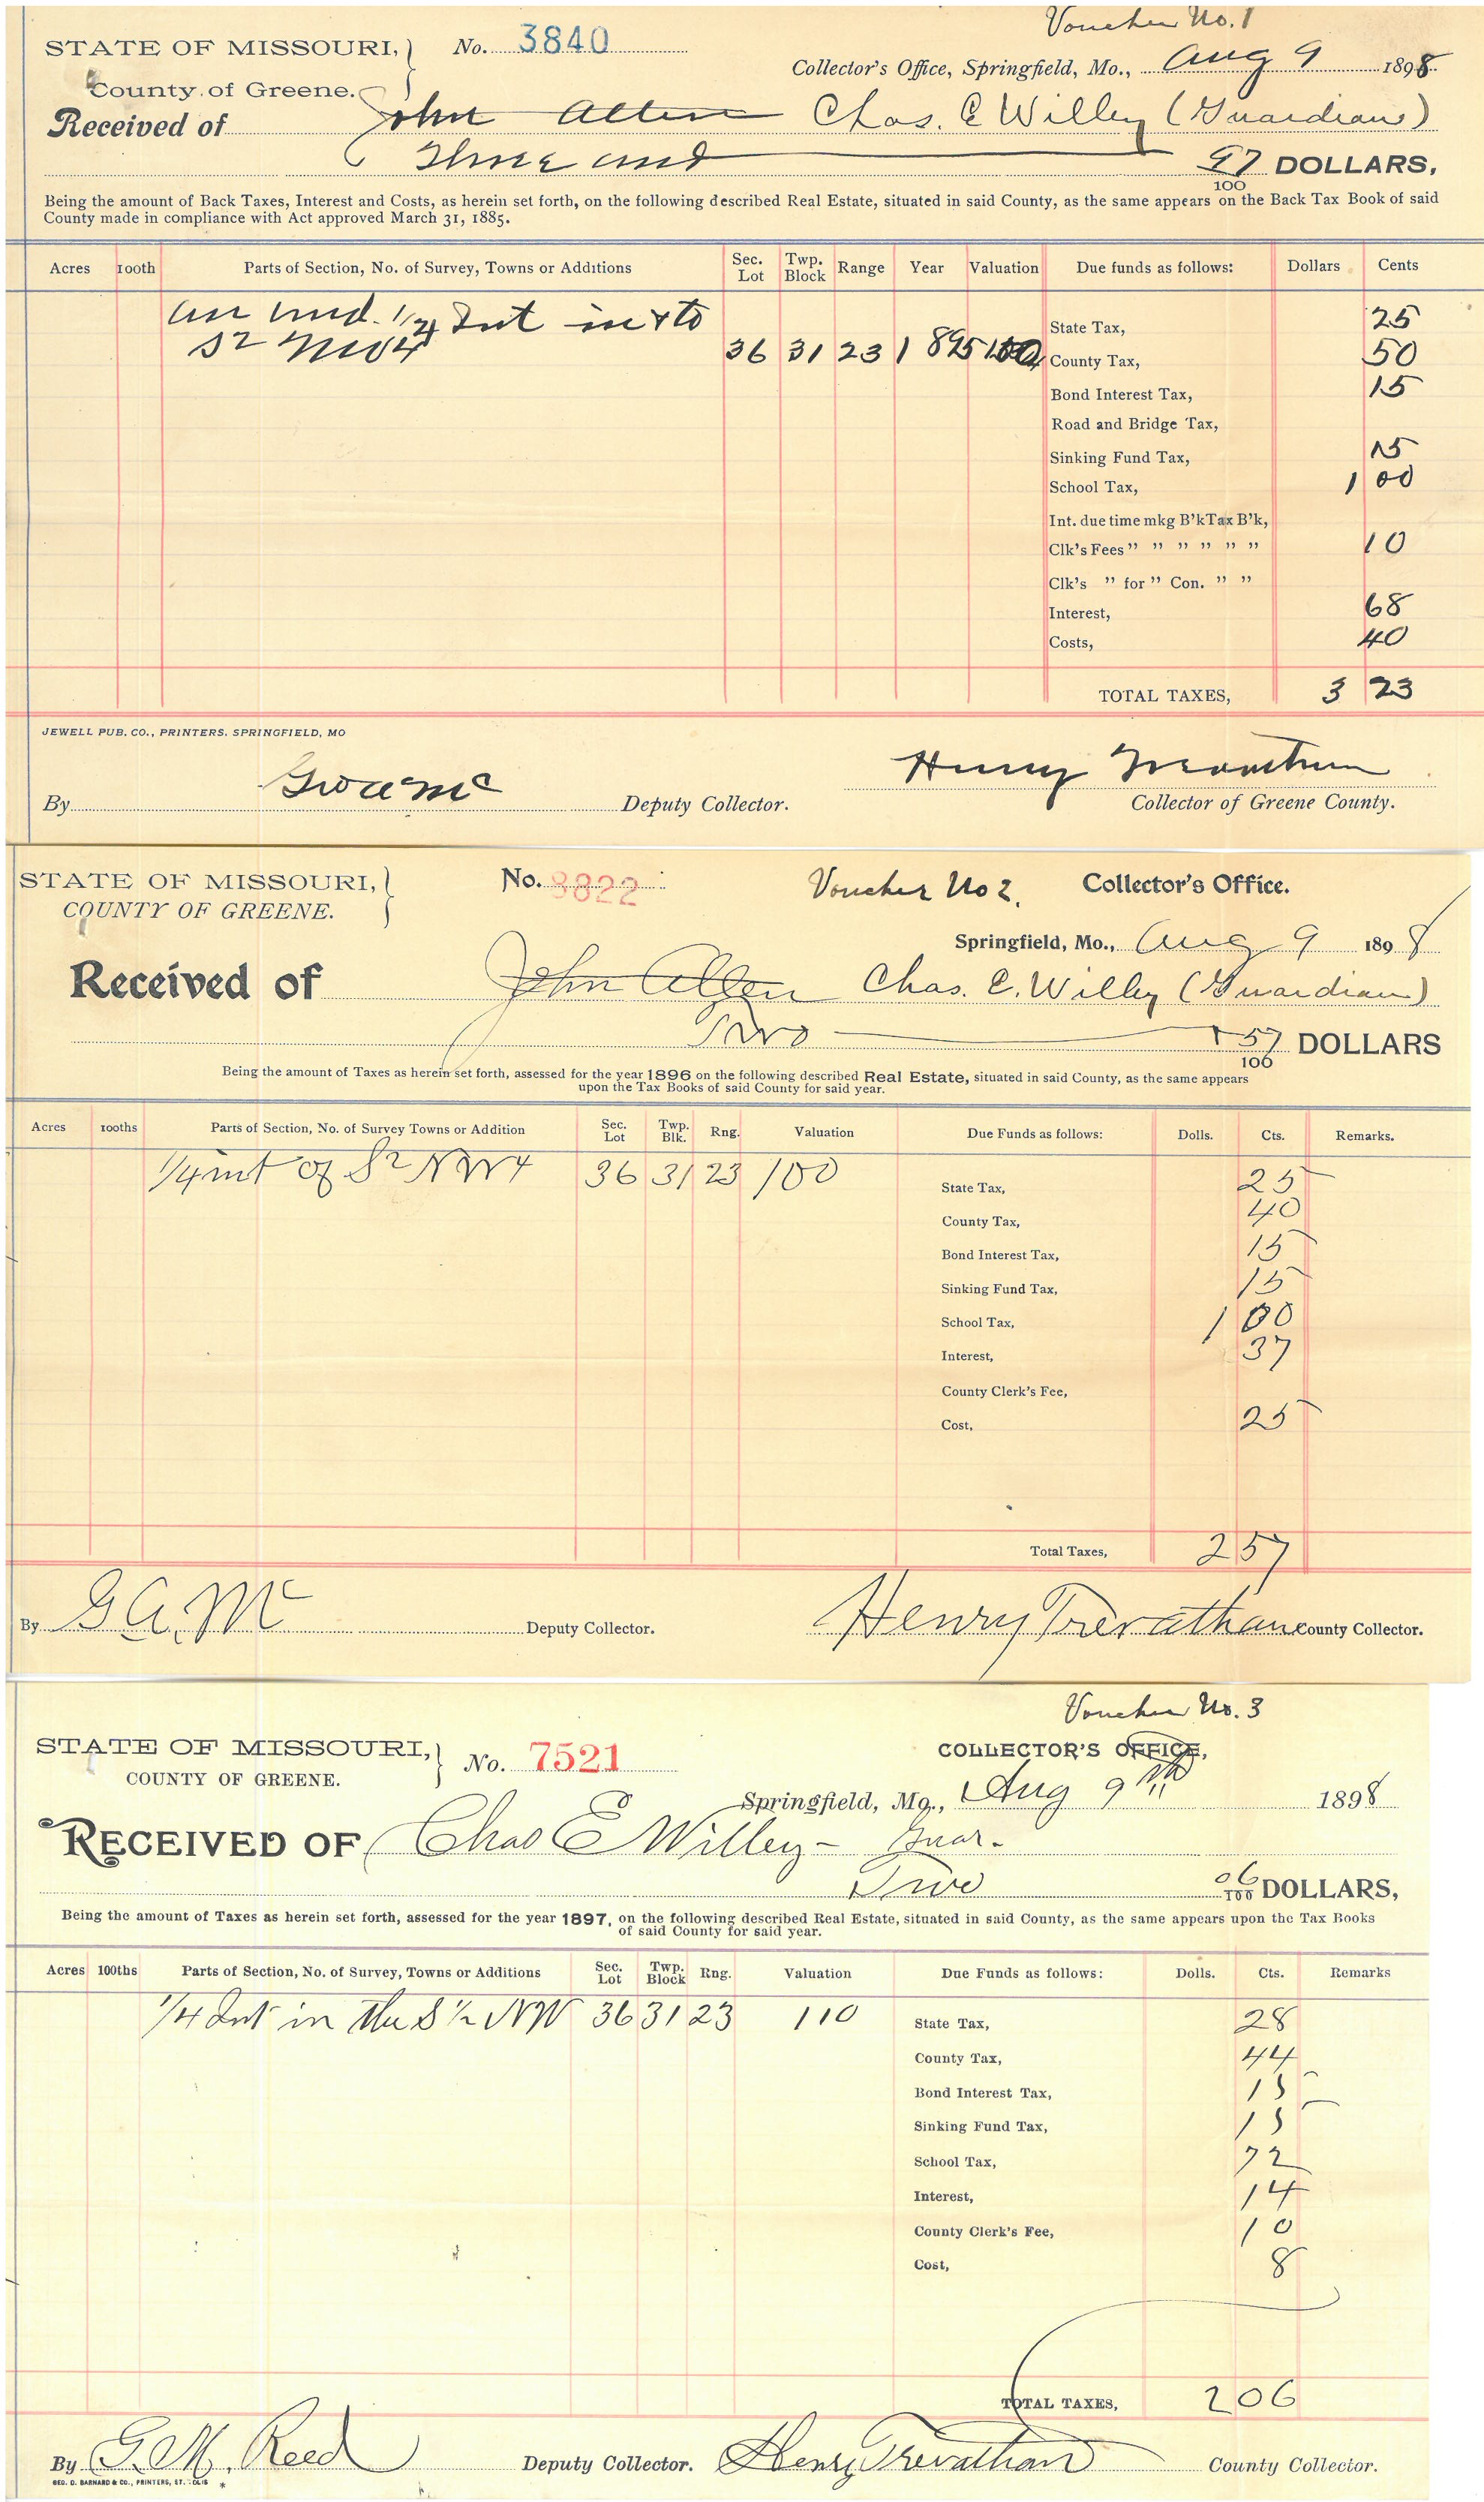 Voucher No. 1
STATE OF MISSOURI, No. 3840
Collector's Office, Springfield, Mo., Aug 9 1898
County of Greene.
Received of John Allen Chas. E Willey (Guardian)
Three and 97/100 DOLLARS,
Being the amount of Back Taxes, Interest and Costs, as herein set forth, on the following described Real Estate, situated in said County, as the same appears on the Back Tax Book of said
County made in compliance with Act approved March 31, 1885.
Acres 100th Parts of Section, No. of Survey, Towns or Additions Sec. Lot Twp. Block Range Year Valuation Due funds as follows: Dollars Cents
an und. 1/4 Int in & to
S2 NW4 36 31 23 1895 100
State Tax, 25
County Tax, 50
Bond Interest Tax, 15
Road and Bridge Tax,
Sinking Fund Tax, 15
School Tax, 1 00
Int. due time mkg B'k Tax B'k,
Clk's Fees " " " " " " 10
Clk's " for " Con. " "
Interest, 68
Costs, 40
TOTAL TAXES, 3 23
JEWELL PUB. CO., PRINTERS. SPRINGFIELD, MO
By Deputy Collector. Henry Trevathan Collector of Greene County.
STATE OF MISSOURI, No. 3822 Voucher No 2. Collector's Office.
COUNTY OF GREENE.
Springfield, Mo., Aug 9 1898
Received of John Allen Chas. E. Willey (Guardian)
Two + 57/100 DOLLARS
Being the amount of Taxes as herein set forth, assessed for the year 1896 on the following described Real Estate, situated in said County, as the same appears
upon the Tax Books of said County for said year.
Acres 100ths Parts of Section, No. of Survey Towns or Addition Sec. Lot Twp. Blk. Rng. Valuation Due Funds as follows: Dolls. Cts. Remarks.
1/4 int of S2 NW4 36 31 23 100
State Tax, 25
County Tax, 40
Bond Interest Tax, 15
Sinking Fund Tax, 15
School Tax, 1 00
Interest, 37
County Clerk's Fee,
Cost, 25
Total Taxes, 2 57
By G. A. Mc Deputy Collector. Henry Trevathan County Collector.
Voucher No. 3
STATE OF MISSOURI, No. 7521 COLLECTOR'S OFFICE,
COUNTY OF GREENE.
Springfield, Mo., Aug 9th 1898
RECEIVED OF Chas E Willey - Guar.
Two 06/100 DOLLARS,
Being the amount of Taxes as herein set forth, assessed for the year 1897, on the following described Real Estate, situated in said County, as the same appears upon the Tax Books
of said County for said year.
Acres 100ths Parts of Section, No. of Survey, Towns or Additions Sec. Lot Twp. Block Rng. Valuation Due Funds as follows: Dolls. Cts. Remarks
1/4 Int in the S 1/2 NW 36 31 23 110
State Tax, 28
County Tax, 44
Bond Interest Tax, 15
Sinking Fund Tax, 15
School Tax, 72
Interest, 14
County Clerk's Fee, 10
Cost, 8
TOTAL TAXES, 2 06
By G. M. Reed Deputy Collector. Henry Trevathan County Collector.
GEO. D. BARNARD & CO., PRINTERS, ST. LOUIS